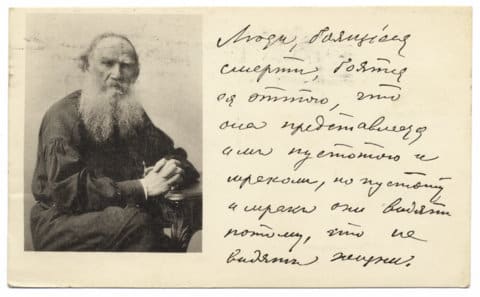 Люди, боящіеся
смерти, боятся
ея оттого, что
она представляется
имъ пустотою и
мракомъ, но пустоту
и мракъ они видятъ
потому, что не
видятъ жизни.